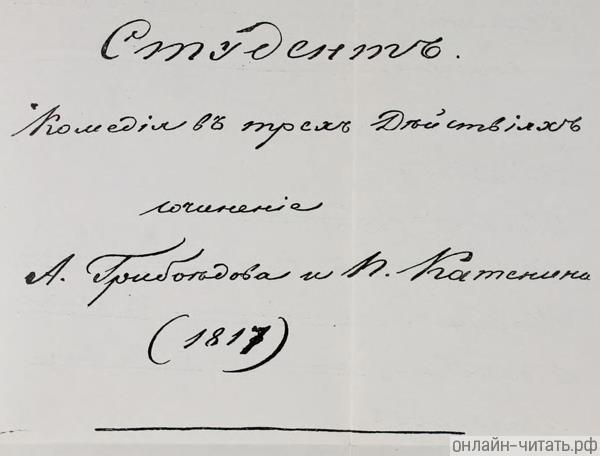 Студентъ.
Комедія въ трехъ Дѣйствіяхъ
сочиненіе
А. Грибоѣдова и П. Катенина
(1817)
онлайн-читать.рф